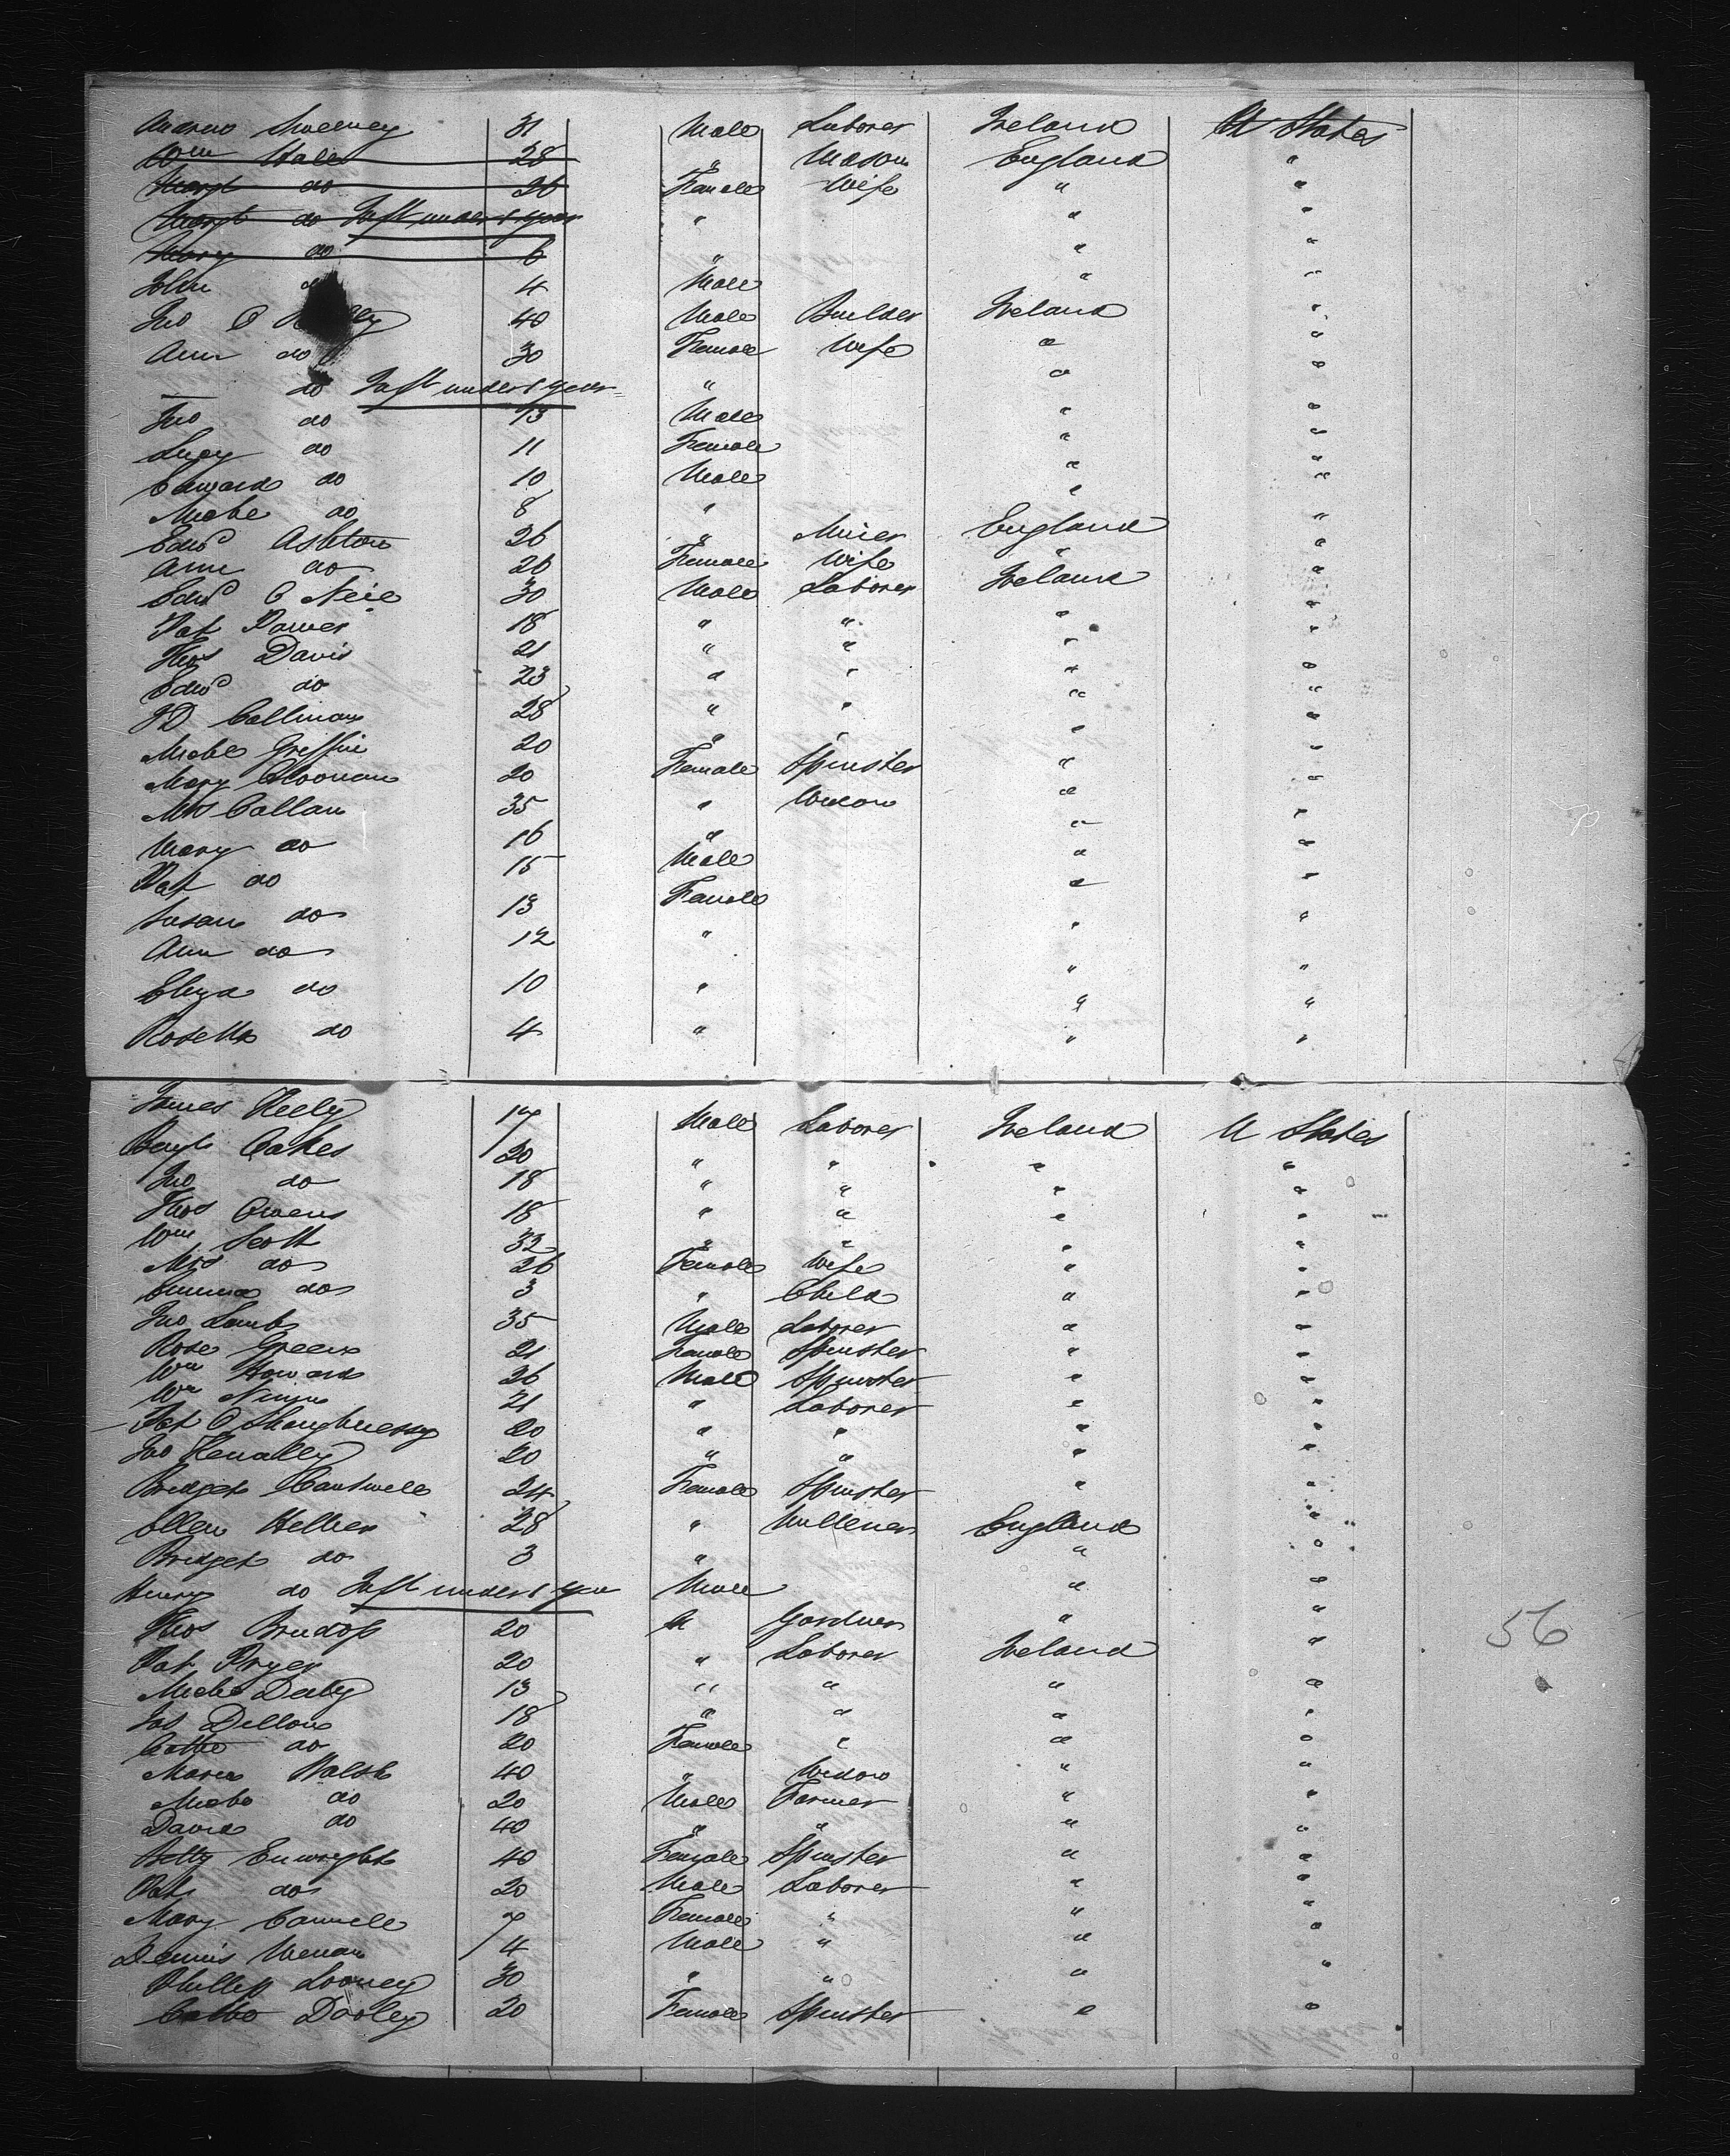 Andrew Sweeney 31 Male Laborer Ireland U States
Wm Hale 28 " Mason England "
Margt do 26 Female Wife " "
Margt do Inft under 1 year " " "
Mary do 6 " " "
John do 4 Male " "
Jno O 40 Male Builder Ireland "
Ann do 30 Female Wife " "
— do Inft under 1 year " " "
Jno do 13 Male " "
Lucy do 11 Female " "
Edward do 10 Male " "
Michl do 8 " " "
Edwd Ashton 26 " Miner England "
Ann do 26 Female Wife " "
Edwd O Neil 30 Male Laborer Ireland "
Pat Power 18 " " " "
Thos Davis 21 " " " "
Edwd do 23 " " " "
J D Callinan 28 " " " "
Michl Griffin 20 " " " "
Mary Noonan 20 Female Spinster " "
Mrs Callan 35 " Widow " "
Mary do 16 " " "
Pat do 15 Male " "
Susan do 13 Female " "
Ann do 12 " " "
Eliza do 10 " " "
Rosetta do 4 " " "
James Keely 17 Male Laborer Ireland U States
Oakes 20 " " " "
Jno do 18 " " " "
Thos Owens 18 " " " "
Wm Scott 32 " " " "
Mrs do 26 Female Wife " "
Emma do 3 " Child " "
Jno Lamb 35 Male Laborer " "
Rose Green 21 Female Spinster " "
Wm Howard 26 Male Spinster " "
Wm 21 " Laborer " "
Pat O Shaughnessy 20 " " " "
Jno Kenally 20 " " " "
Bridget Cantwell 24 Female Spinster " "
Ellen Hellier 28 " Milliner England "
Bridget do 3 " " "
Henry do Inft under 1 year Male " "
Thos 20 " Gardner " "
Pat Pryer 20 " Laborer Ireland "
56
Michl 13 " " " "
Jas Dillon 18 " " " "
Cathe do 20 Female " " "
Maria Walsh 40 " Widow " "
Michl do 20 Male Farmer " "
David do 40 " " " "
Betty Enwright 40 Female Spinster " "
Pat do 20 Male Laborer " "
Mary Cannell 7 Female " " "
Dennis 4 Male " " "
Phillip Looney 30 " " " "
Cathe Dooley 20 Female Spinster " "